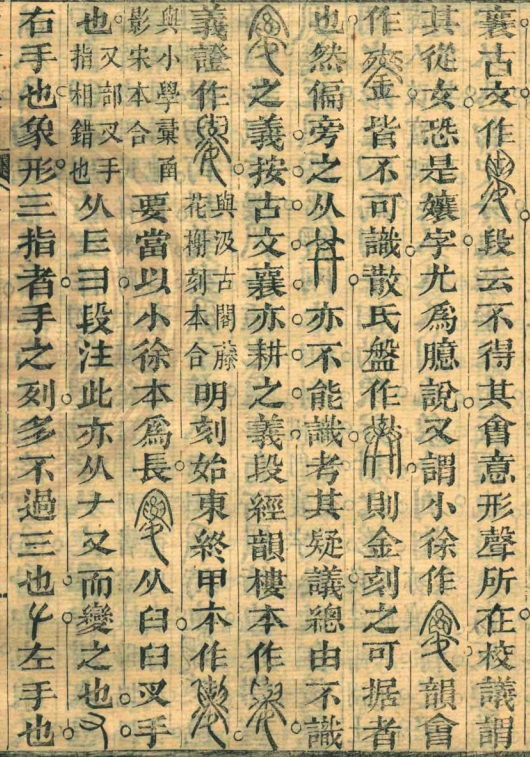 襄古文作段云不得其會意形聲所在校議謂
其從女恐是孃字尤爲臆說又謂小徐作韻會
作皆不可識散氏盤作則金刻之可据者
也然偏旁之从亦不能識考其疑議總由不識
之義按古文襄亦耕之義段經韻樓本作
義證作與汲古閣藤花榭刻本合明刻始東終甲本作
與小學彙函影宋本合要當以小徐本爲長从𦥑𦥑叉手
也又部叉手指相錯也从𦥑彐段注此亦从𠂇又而變之也
右手也象形三指者手之列多不過三也𠂇左手也